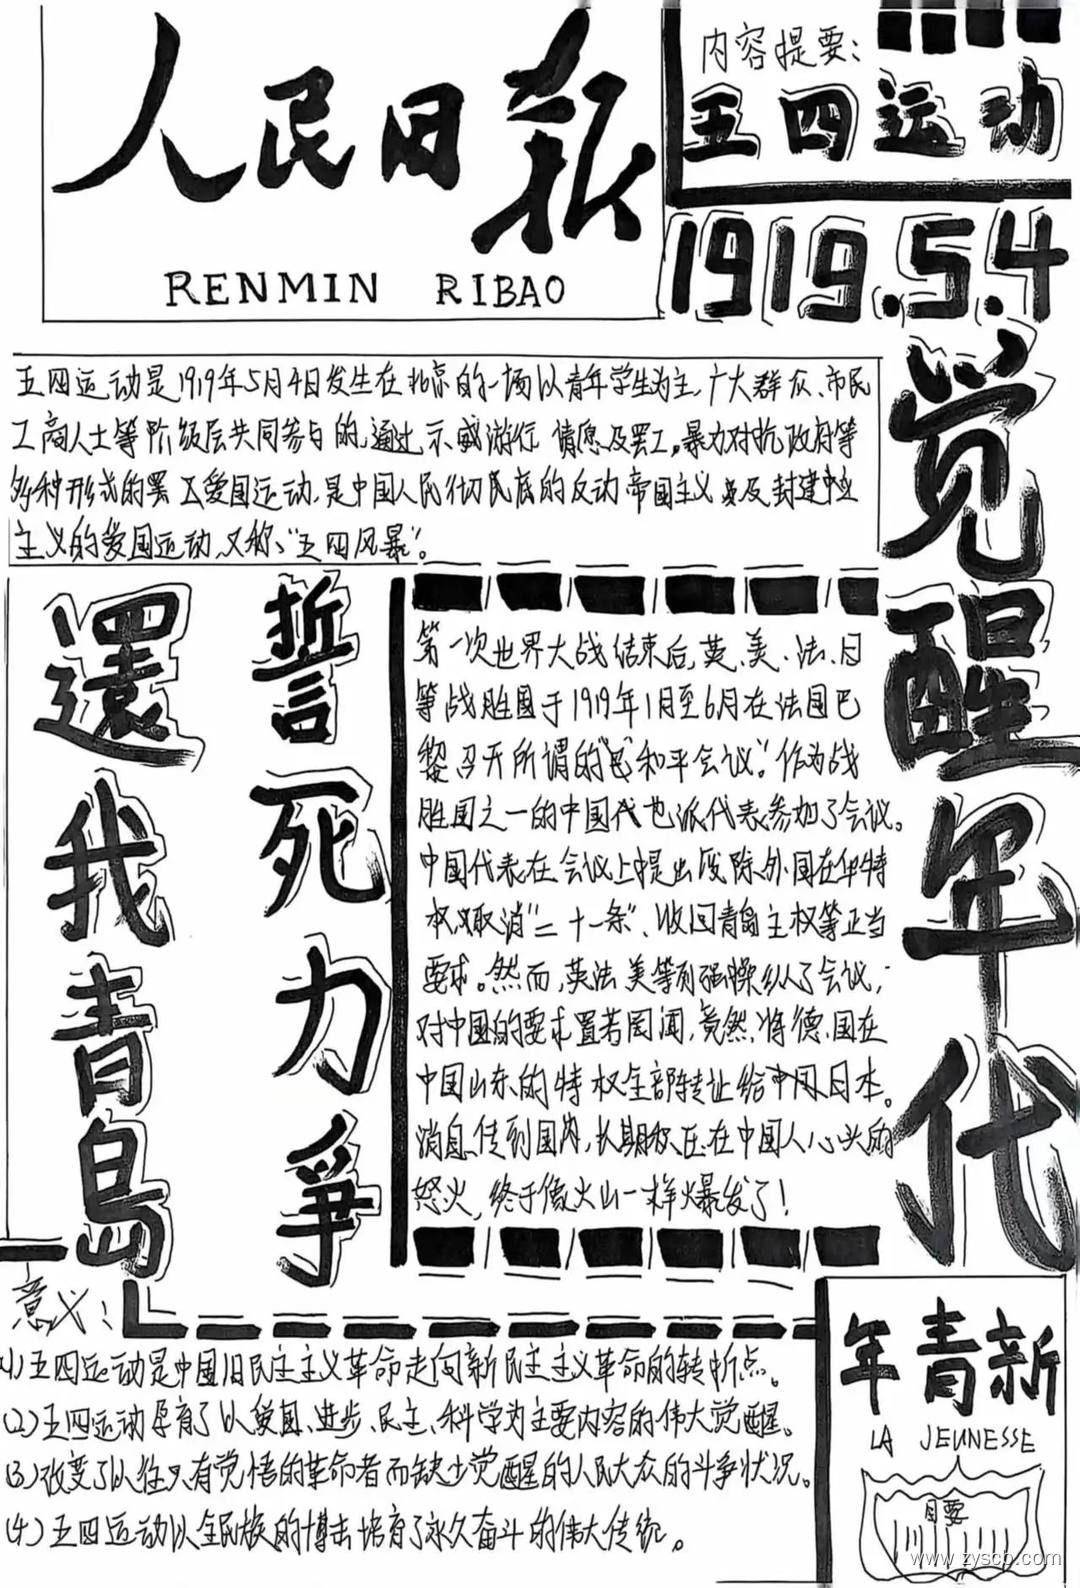 人民日报
RENMIN RIBAO
内容提要：
五四运动
1919.5.4
觉醒年代
五四运动是1919年5月4日发生在北京的一场以青年学生为主，广大群众、市民
工商人士等阶级层共同参与的，通过示威游行 请愿及罢工，暴力对抗政府等
多种形式的罢工爱国运动，是中国人民彻民族的反动帝国主义以及封建
主义的爱国运动，又称、"五四风暴"。
還我青島
誓死力爭
第一次世界大战结束后，英、美、法、日
等战胜国于1919年1月至6月在法国巴
黎召开所谓的"巴和平会议"。作为战
胜国之一的中国代也派代表参加了会议。
中国代表在会议上提出废除外国在华特
权 取消"二十一条"、收回青岛主权等正当
要求。然而，英法美等列强操纵了会议，
对中国的要求置若罔闻，竟然，将德国在
中国山东的特权全部转让给日本。
消息传到国内，长期积压在中国人心头的
怒火，终于像火山一样火暴发了！
意义：
(1)五四运动是中国旧民主主义革命走向新民主主义革命的转折点。
(2)五四运动孕育了以爱国、进步、民主、科学为主要内容的伟大觉醒。
(3)改变了以往只有觉悟的革命者而缺少觉醒的人民大众的斗争状况。
(4)五四运动以全民族的搏击培育了永久奋斗的伟大传统。
新青年
LA JEUNESSE
目要
www.zyscb.com